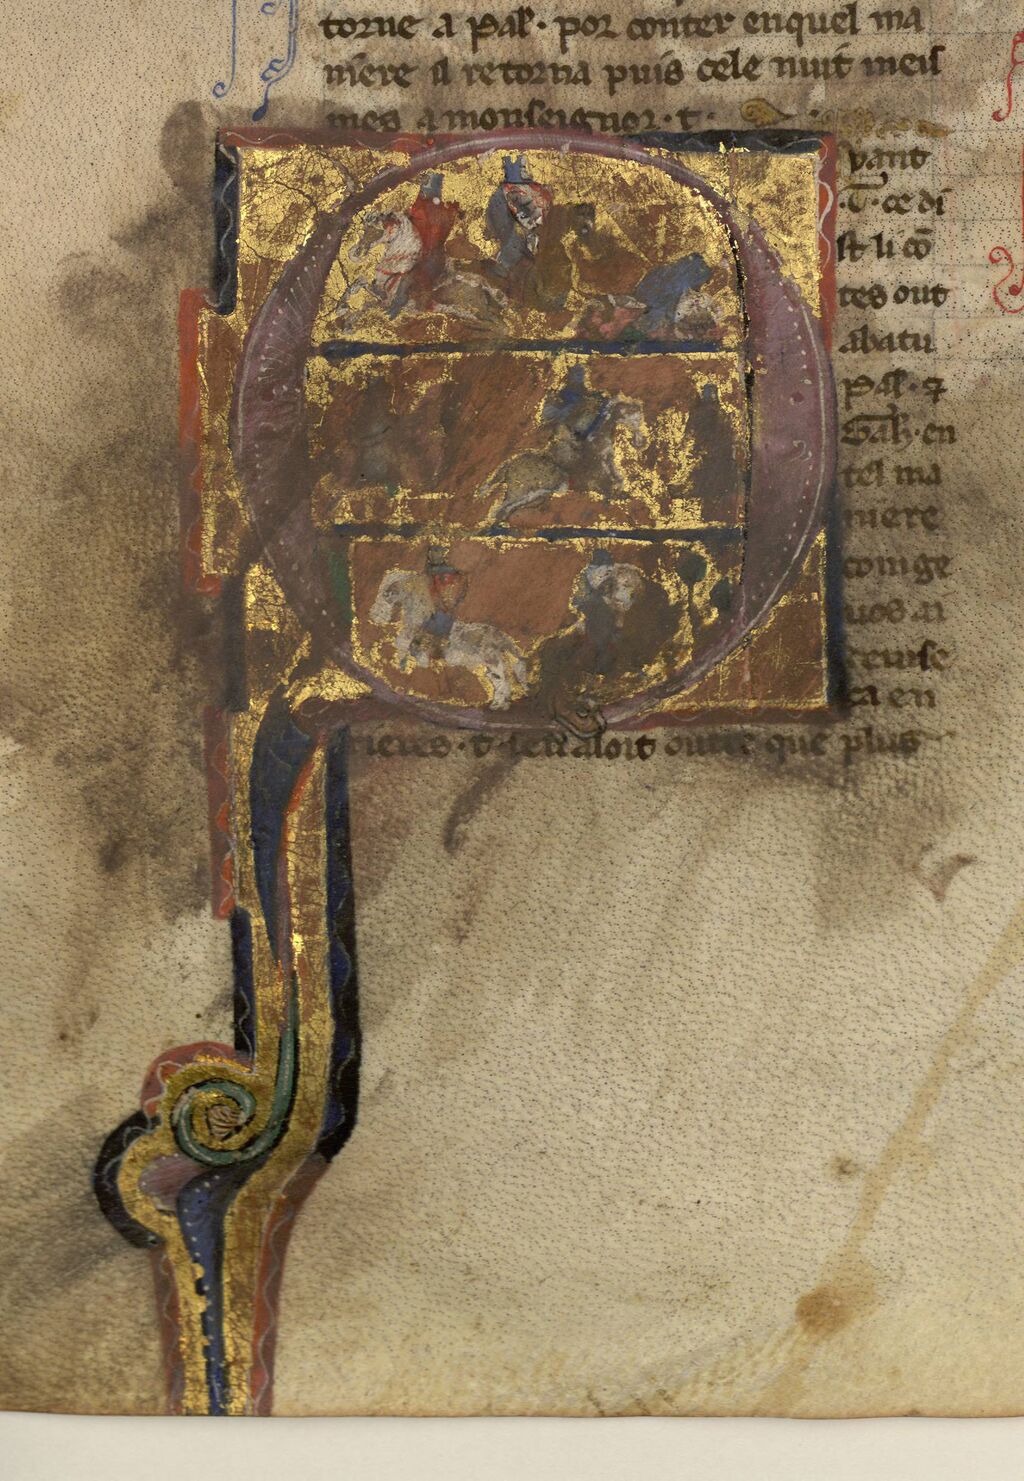 torne a Pal̃· por conter enquel ma
niere il retorna puis cele nuit meis
mes a monseignor· t·
vant
·T̃· ce di
st li cõ
tes out
abatu
Pal̃· ⁊
Gal̃h· en
tel ma
niere
com ge
uos ai
deuise
ca en
rieres· t· sen aloit outre que plus